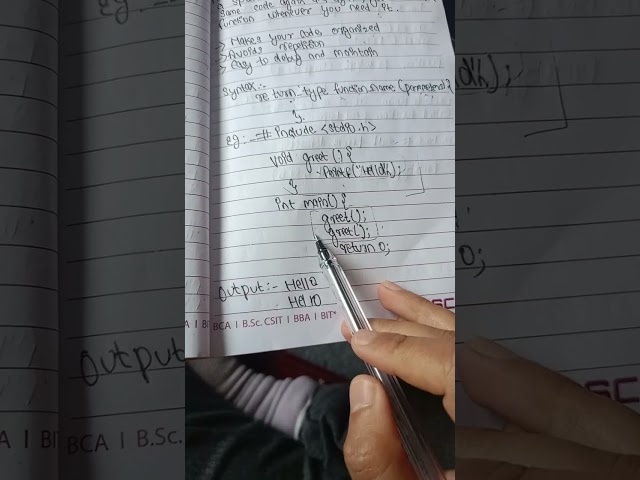 same code again & again
function whenever you need it.
> Makes your code organized
> Avoids repetition
> Easy to debug and maintain
Syntax:-
return type function name (parameters) {
};
eg:- # include <stdio.h>
void greet () {
printf("Hello\n");
}
int main() {
greet();
greet();
return 0;
Output:- Hello
Hello
BCA I B.Sc. CSIT I BBA I BIT